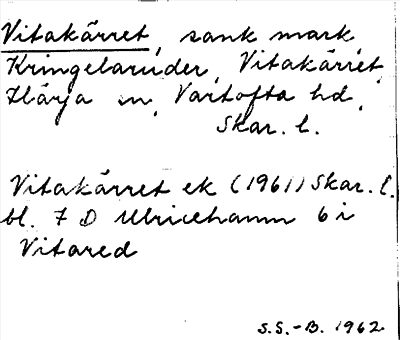 Vitakärret, sank mark,
Kringelaruder, Vitakärret,
Härja sn, Vartofta hd,
Skar. l.
Vitakärret ek (1961) Skar. l.
bl. 7 D Ulricehamn 6 i
Vitared
S.S.-B. 1962